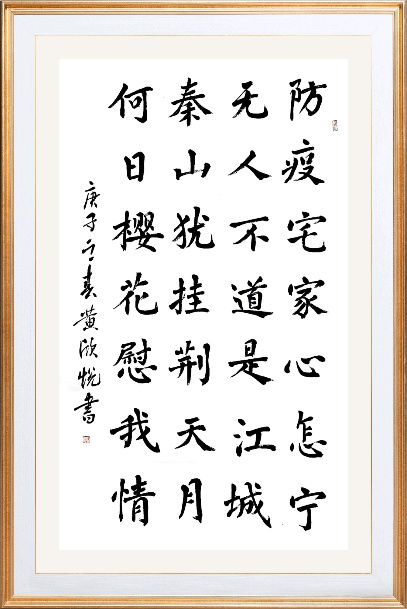 防疫宅家心怎宁
无人不道是江城
秦山犹挂荆天月
何日樱花慰我情
庚子之春黄欣悦书